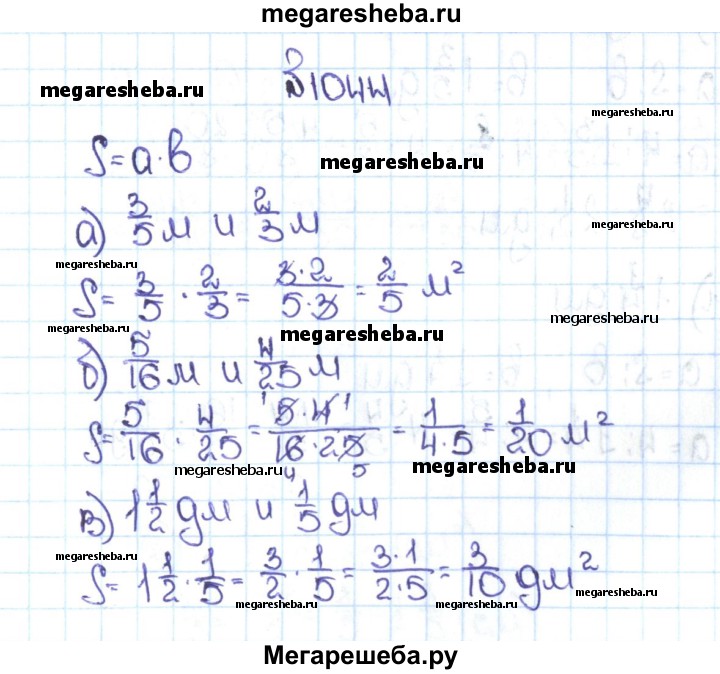 megaresheba.ru
№1044
megaresheba.ru
megaresheba.ru
S=a·b
megaresheba.ru
а) 3/5 м и 2/3 м
megaresheba.ru
megaresheba.ru
S= 3/5 · 2/3 = 3·2/5·3 = 2/5 м²
megaresheba.ru
megaresheba.ru
megaresheba.ru
б) 5/16 м и 4/25 м
S= 5/16 · 4/25 = 5·4/16·25 = 1/4·5 = 1/20 м²
1 1
4 5
megaresheba.ru
megaresheba.ru
в) 1 1/2 дм и 1/5 дм
megaresheba.ru
S= 1 1/2 · 1/5 = 3/2 · 1/5 = 3·1/2·5 = 3/10 дм²
megaresheba.ru
megaresheba.ru
megaresheba.ru
Мегарешеба.ру